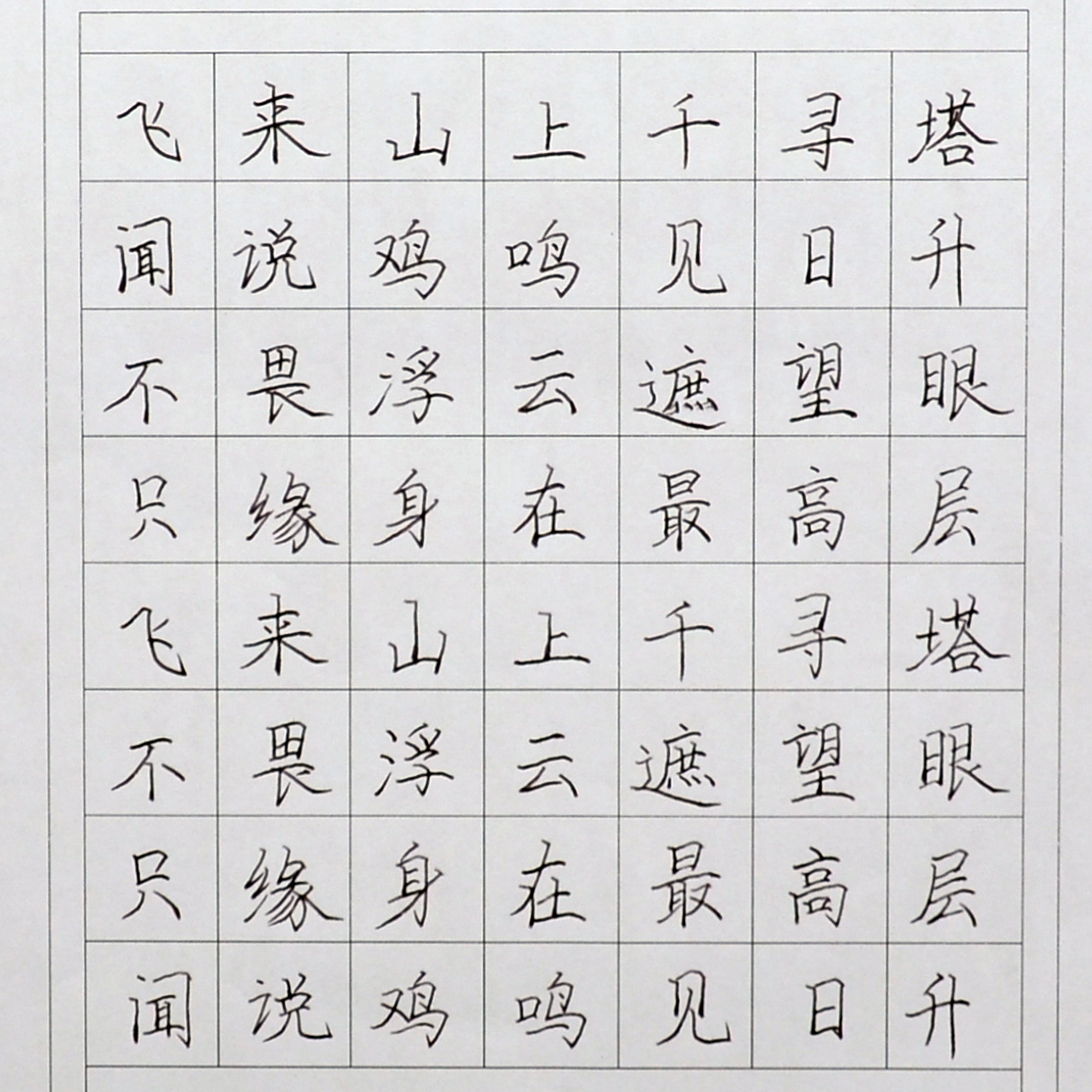 飞来山上千寻塔
闻说鸡鸣见日升
不畏浮云遮望眼
只缘身在最高层
飞来山上千寻塔
不畏浮云遮望眼
只缘身在最高层
闻说鸡鸣见日升